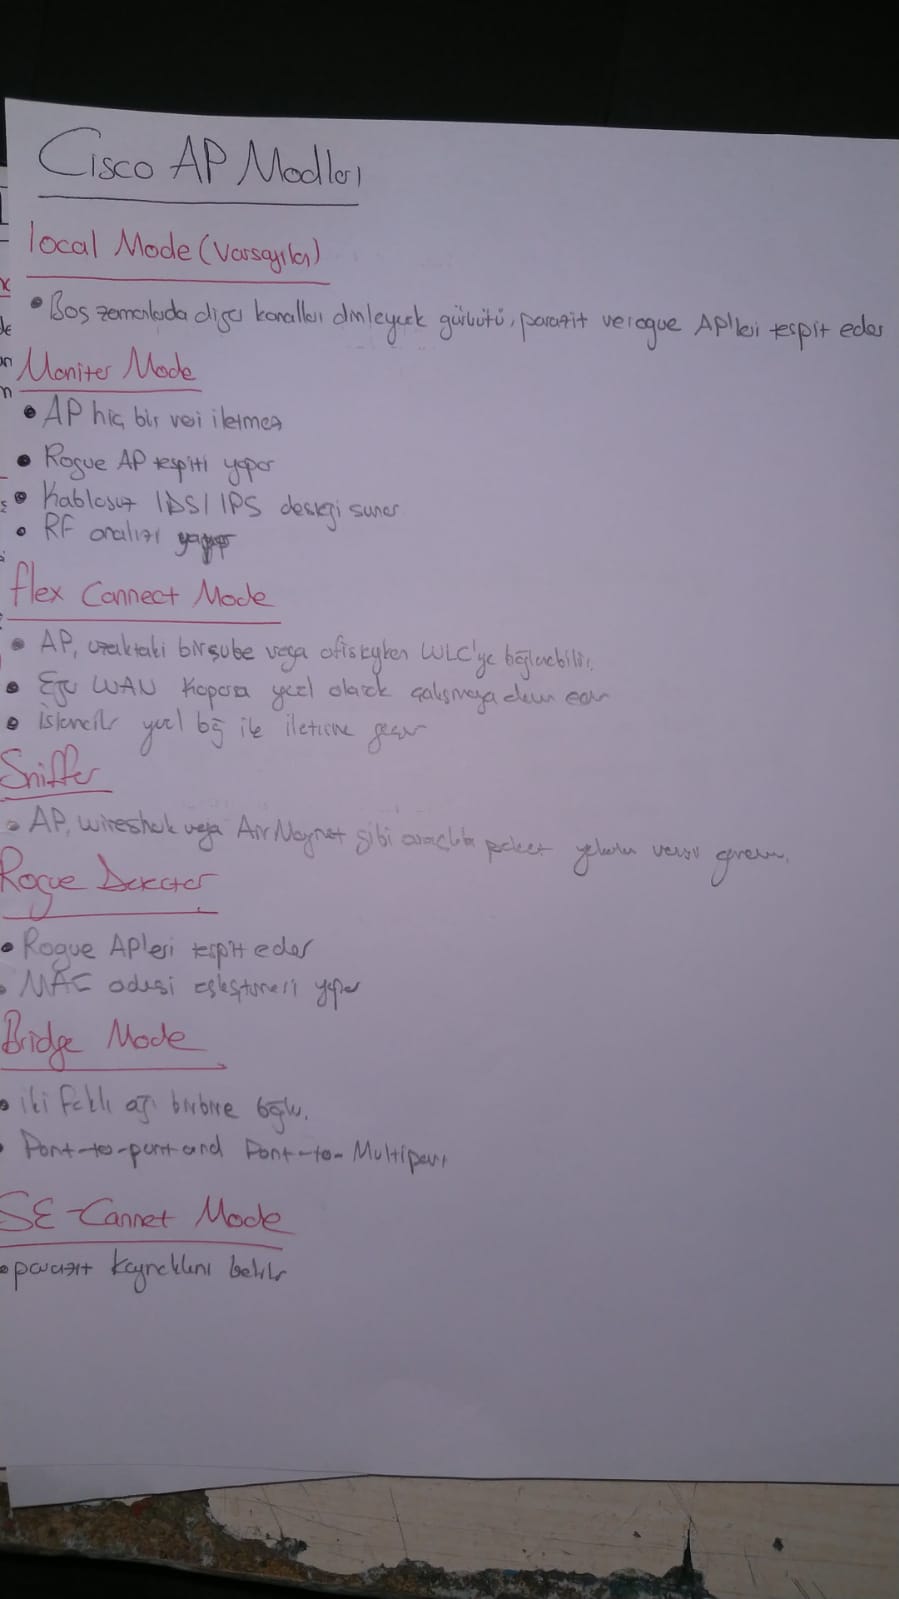 Cisco AP Modları
local Mode (Varsayılan)
• Boş zamanlarda diğer kanalları dinleyerek gürültü, parazit ve rogue AP'leri tespit eder
Moniter Mode
• AP hiç bir veri iletmez
• Rogue AP tespiti yapar
• Kablosuz IDS/IPS desteği sunar
• RF analizi yapar
flex Connect Mode
• AP, uzaktaki bir şube veya ofisteyken WLC'ye bağlanabilir.
• Eğer WAN Koparsa yerel olarak çalışmaya devam eder
• İstemciler yerel ağ ile iletişime geçer
Sniffer
• AP, wireshark veya AirMagnet gibi araçlarla paket
Rogue Detector
• Rogue APleri tespit eder
• MAC adresi eşleştirmesi yapar
Bridge Mode
• iki farklı ağı birbirine bağlar.
• Point-to-point and Point-to-Multipoint
SE-Connet Mode
• parazit kaynaklarını belirler